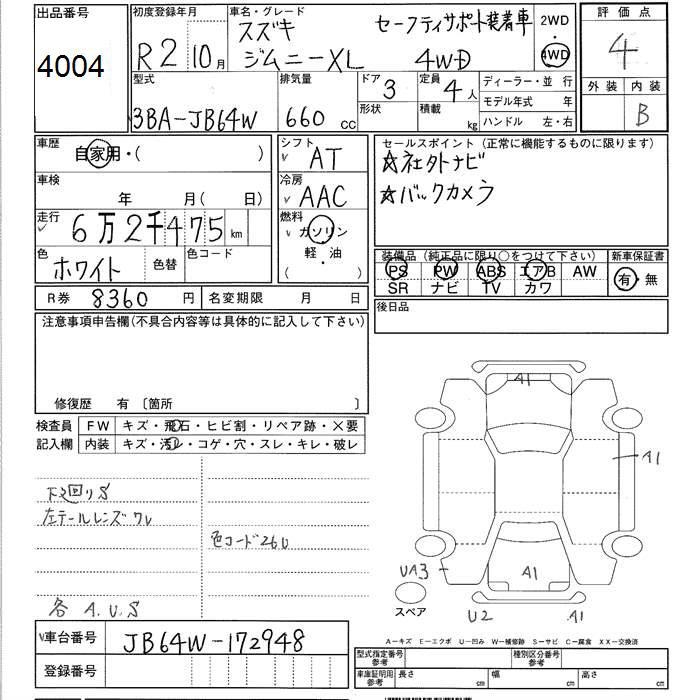 出品番号
4004
初度登録年月
R2 10月
車名・グレード
スズキ セーフティサポート装着車
ジムニーXL 4WD
2WD
4WD
評価点
4
外装 内装
B
型式
3BA-JB64W
排気量
660 CC
ドア 3
形状
定員 4人
積載 kg
ディーラー・並行
モデル年式 年
ハンドル 左・右
車歴
自家用・( )
車検
年 月( 日)
走行
6万2千475km
色
ホワイト
色替
色コード
シフト
AT
冷房
AAC
燃料
ガソリン
軽・油
( )
セールスポイント (正常に機能するものに限ります)
☆社外ナビ
☆バックカメラ
装備品 (純正品に限り○をつけて下さい)
PS PW ABS エアB AW
SR ナビ TV カワ
新車保証書
有・無
R券 8360円
名変期限 月 日
後日品
注意事項申告欄(不具合内容等は具体的に記入して下さい)
修復歴 有 〔箇所 〕
検査員
記入欄
FW キズ・飛石・ヒビ割・リペア跡・×要
内装 キズ・汚レ・コゲ・穴・スレ・キレ・破レ
下廻りS
左テールレンズワレ
色コード26U
各 A.U.S
A1
A1
UA3
A1
スペア
U2
A1
A—キズ E—エクボ U—凹み W—補修跡 S—サビ C—腐食 XX—交換済
車台番号 JB64W-172948
登録番号
型式指定番号
参考
種別区分番号
参考
車庫証明用
参考
長さ cm
幅 cm
高さ cm